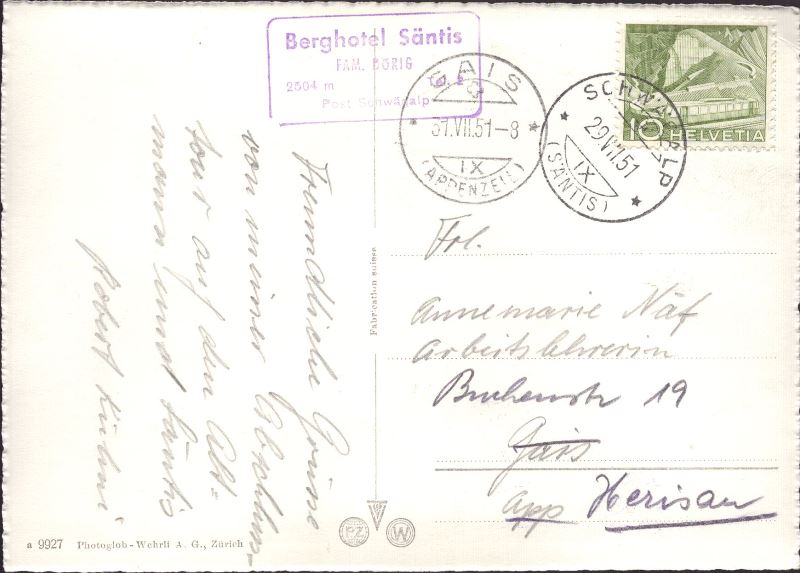 Berghotel Säntis
FAM. DÖRIG
2504 m
Post Schwägalp
GAIS
31.VII.51-8
IX
(APPENZELL)
SCHWÄGALP
29.VII.51
IX
(SÄNTIS)
10 HELVETIA
Freundliche Grüsse
von meiner Abschluss-
tour auf den Alt-
mann und Säntis
Robert
Fabrication suisse
Frl.
Annemarie Näf
Arbeitslehrerin
Buchenstr 19
Gais
App Herisau
a 9927 Photoglob-Wehrli A. G., Zürich
PZ
W